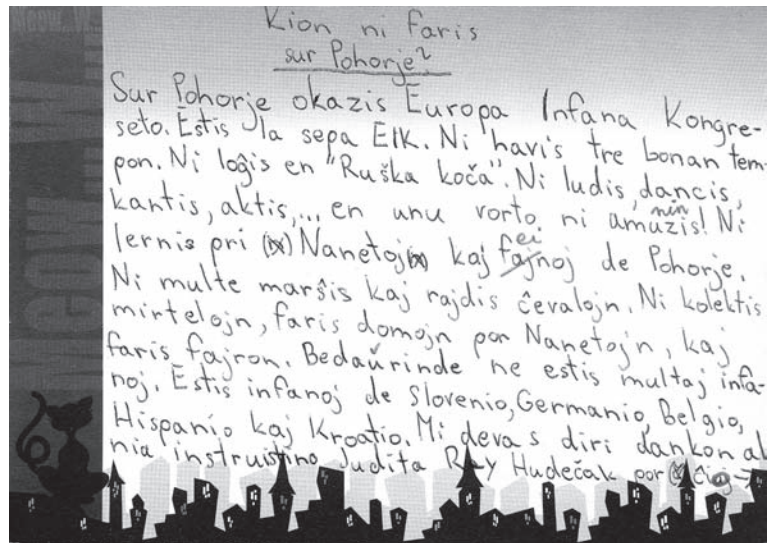 Kion ni faris
sur Pohorje?
Sur Pohorje okazis Europa Infana Kongre-
seto. Estis la sepa EIK. Ni havis tre bonan tem-
pon. Ni loĝis en "Ruška koča". Ni ludis, dancis,
kantis, aktis,... en unu vorto ni amuzis nin! Ni
lernis pri Nanetoj kaj feinoj de Pohorje.
Ni multe marŝis kaj rajdis ĉevalojn. Ni kolektis
mirtelojn, faris domojn por Nanetojn, kaj
faris fajron. Bedaŭrinde ne estis multaj infa-
noj. Estis infanoj de Slovenio, Germanio, Belgio,
Hispanio kaj Kroatio. Mi devas diri dankon al
nia instruistino Judita Rey Hudečak por ĉio →